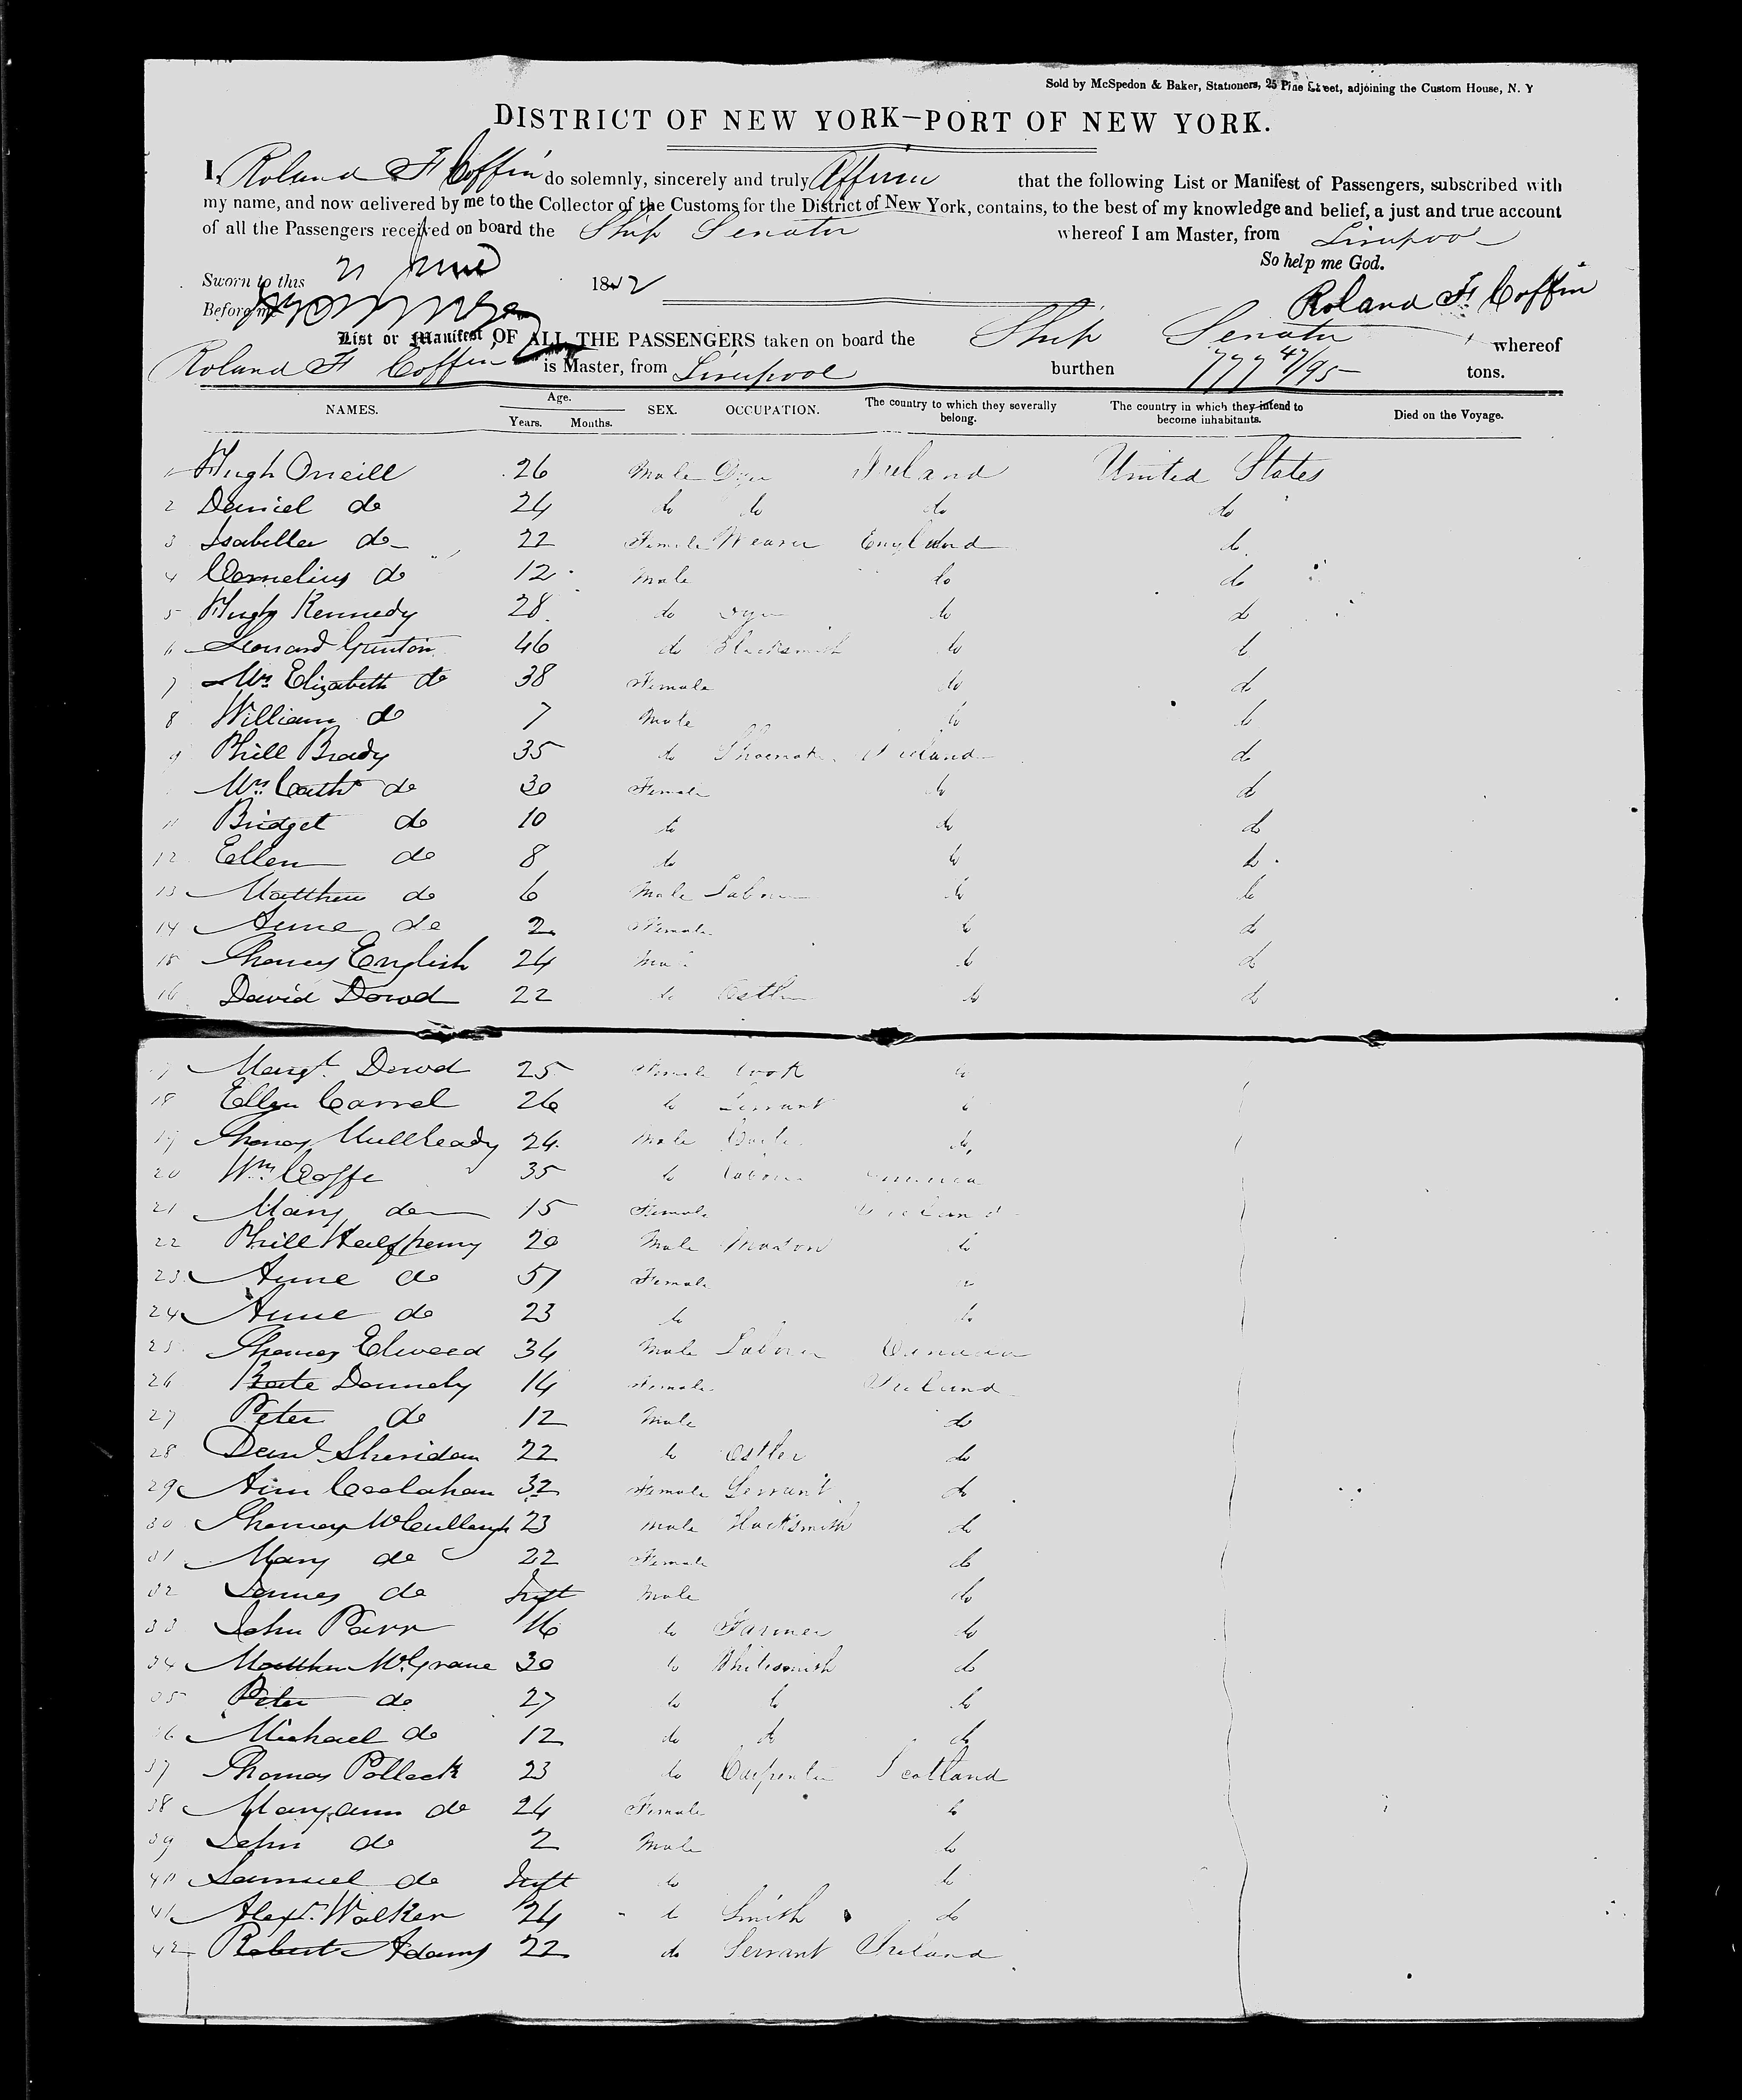 Sold by McSpedon & Baker, Stationers, 25 Pine Street, adjoining the Custom House, N. Y
DISTRICT OF NEW YORK—PORT OF NEW YORK.
I, Roland F Coffin do solemnly, sincerely and truly Affirm that the following List or Manifest of Passengers, subscribed with
my name, and now delivered by me to the Collector of the Customs for the District of New York, contains, to the best of my knowledge and belief, a just and true account
of all the Passengers received on board the Ship Senator whereof I am Master, from Liverpool
So help me God.
Sworn to this 21 June 1842
Before me
Roland F. Coffin
List or Manifest OF ALL THE PASSENGERS taken on board the Ship Senator, whereof
Roland F Coffin is Master, from Liverpool burthen 777 47/95 tons.
NAMES. Age. Years. Months. SEX. OCCUPATION. The country to which they severally belong. The country in which they intend to become inhabitants. Died on the Voyage.
1 Hugh Oneill 26 Male Dyer Ireland United States
2 Daniel do 24 do do do do
3 Isabella do 22 Female Weaver England do
4 Cornelius do 12 Male do do
5 Hugh Kennedy 28 do Dyer do do
6 Leonard Gunton 46 do Blacksmith do do
7 Mrs Elizabeth do 38 Female do do
8 William do 7 Male do do
9 Phill Brady 35 do Shoemak Ireland do
Mrs Cathe do 30 Female do do
11 Bridget do 10 do do do
12 Ellen do 8 do do do
13 Matthew do 6 Male Labour do do
14 Anne do 2 Female do do
15 Thomas English 24 Male do do
16 David Dowd 22 do Ostler do do
17 Margt Dowd 25 Female Cook do
18 Ellen Carrol 26 do Servant do
19 Thomas Mullheady 24 Male do
20 Wm Coffe 35 do Labour
21 Mary do 15 Female Ireland
22 Phill Halfpenny 20 Male Mason do
23 Anne do 51 Female do
24 Anne do 23 do do
25 Thomas Elweed 34 Male Labour
26 Kate Donnely 14 Female Ireland
27 Peter do 12 Male do
28 Danl Sheridan 22 do Ostler do
29 Ann Coolahan 32 Female Servant do
30 Thomas McCullaugh 23 Male Blacksmith do
31 Mary do 22 Female do
32 James do Inft Male do
33 John Parr 16 do Farmer do
34 Matthew McGrane 30 do Whitesmith do
35 Peter do 27 do do do
36 Michael do 12 do do do
37 Thomas Pollock 23 do Carpenter Scotland
38 Mary ann do 24 Female do
39 John do 2 Male do
40 Samuel do Inft do do
41 Alexr Walker 24 do Smith do
42 Robert Adams 22 do Servant Ireland